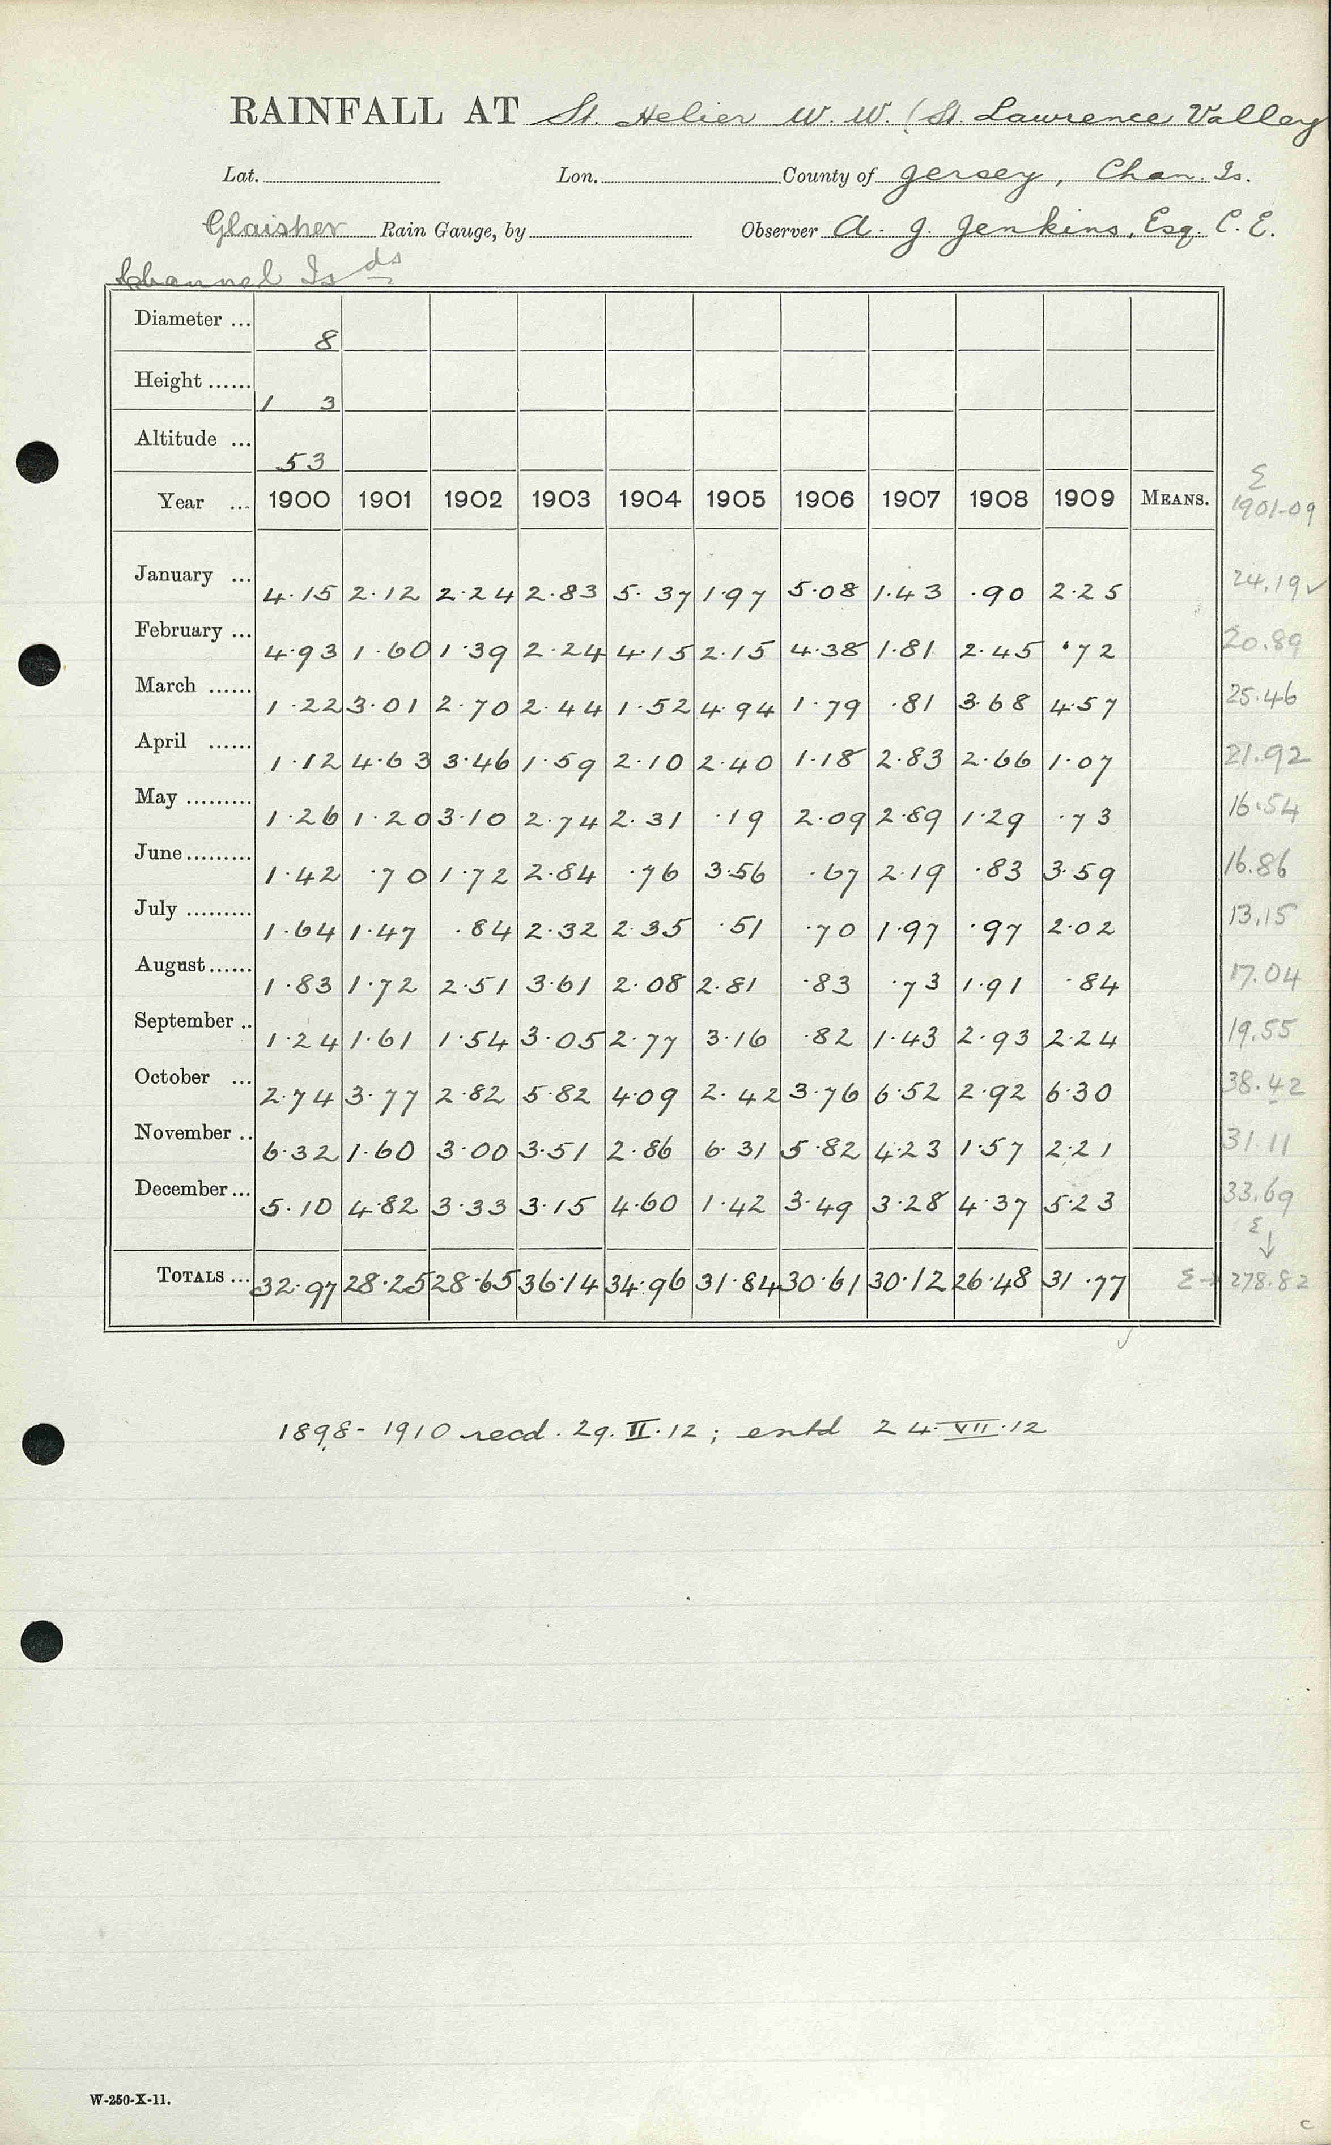 RAINFALL AT St. Helier W. W. (St. Lawrence Valley
Lat. Lon. County of Jersey, Chan. Is.
Glaisher Rain Gauge, by Observer A. J. Jenkins, Esq. C. E.
Channel Is ds
Diameter ... 8
Height ...... 1 3
Altitude ... 53
Σ
Year ... 1900 1901 1902 1903 1904 1905 1906 1907 1908 1909 MEANS. 1901-09
January ... 4.15 2.12 2.24 2.83 5.37 1.97 5.08 1.43 .90 2.25 24.19 ✓
February ... 4.93 1.60 1.39 2.24 4.15 2.15 4.38 1.81 2.45 .72 20.89
March ...... 1.22 3.01 2.70 2.44 1.52 4.94 1.79 .81 3.68 4.57 25.46
April ...... 1.12 4.63 3.46 1.59 2.10 2.40 1.18 2.83 2.66 1.07 21.92
May ......... 1.26 1.20 3.10 2.74 2.31 .19 2.09 2.89 1.29 .73 16.54
June ......... 1.42 .70 1.72 2.84 .76 3.56 .67 2.19 .83 3.59 16.86
July ......... 1.64 1.47 .84 2.32 2.35 .51 .70 1.97 .97 2.02 13.15
August ...... 1.83 1.72 2.51 3.61 2.08 2.81 .83 .73 1.91 .84 17.04
September .. 1.24 1.61 1.54 3.05 2.77 3.16 .82 1.43 2.93 2.24 19.55
October ... 2.74 3.77 2.82 5.82 4.09 2.42 3.76 6.52 2.92 6.30 38.42
November .. 6.32 1.60 3.00 3.51 2.86 6.31 5.82 4.23 1.57 2.21 31.11
December ... 5.10 4.82 3.33 3.15 4.60 1.42 3.49 3.28 4.37 5.23 33.69
Σ ↓
TOTALS ... 32.97 28.25 28.65 36.14 34.96 31.84 30.61 30.12 26.48 31.77 Σ → 278.82
1898-1910 recd. 29.II.12; entd 24.VII.12
W-250-X-11.
c